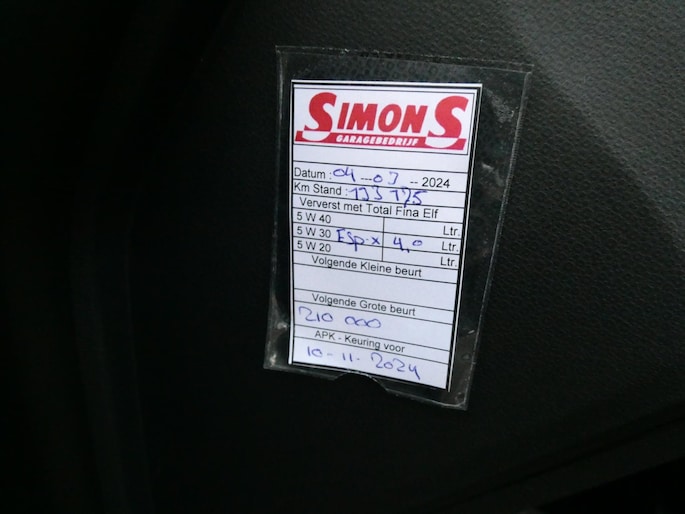 SIMONS
GARAGEBEDRIJF
Datum : 04 --- 03 -- 2024
Km Stand : 193 175
Ververst met Total Fina Elf
5 W 40 Ltr.
5 W 30 Esp-x 4,0 Ltr.
5 W 20 Ltr.
Volgende Kleine beurt
Volgende Grote beurt
210 000
APK - Keuring voor
10-11-2024